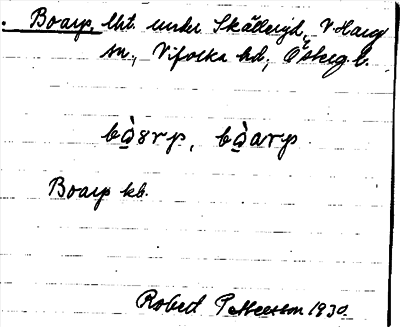 Boarp, lht. under Skälleryd, V. Harg
sn, Vifolka hd, Österg. l.
bò̲ərp, bò̲arp
Boarp kb.
Robert Pettersson 1930.